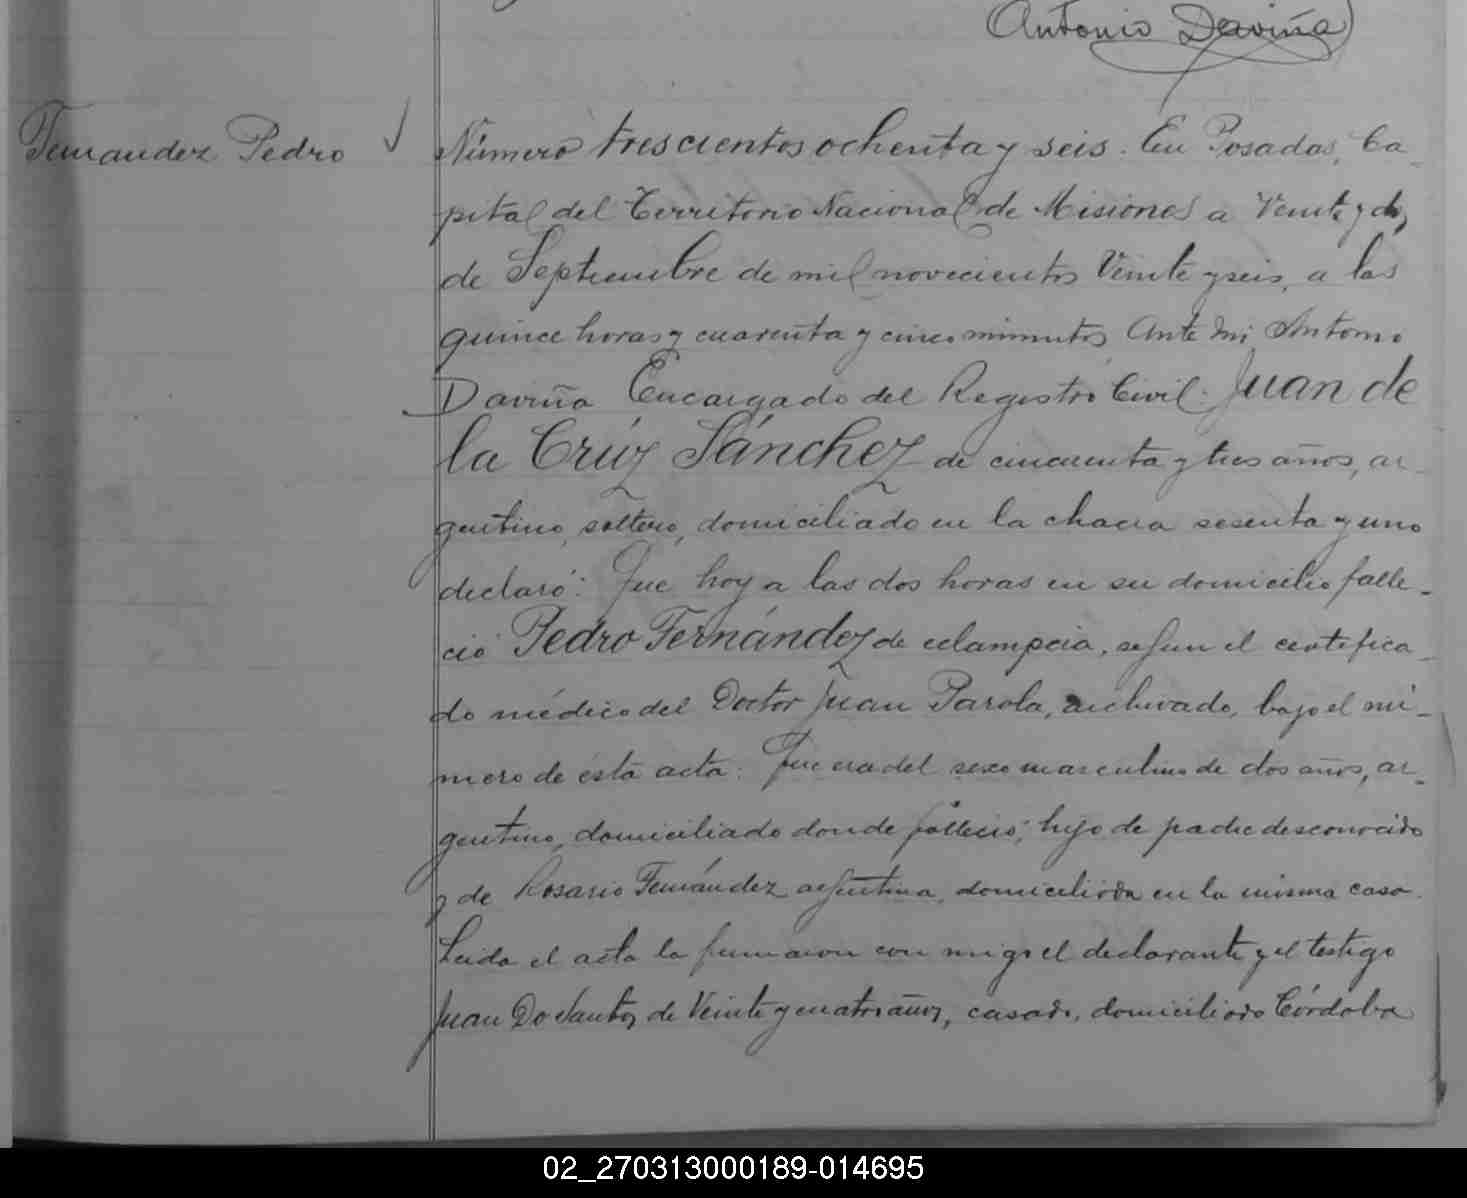 Antonio Daviña
Fernandez Pedro
Número trescientos ochenta y seis. En Posadas, Ca-
pital del Territorio Nacional de Misiones a Veinte y dos
de Septiembre de mil novecientos Veinte y seis, a las
quince horas y cuarenta y cinco minutos Ante Mi Antonio
Daviña Encargado del Registro Civil. Juan de
la Crúz Sánchez de cincuenta y tres años, ar-
gentino, soltero, domiciliado en la chacra sesenta y uno
declaró: Que hoy a las dos horas en su domicilio falle-
ció Pedro Fernández de eclampcia, segun el certifica-
do médico del Doctor Juan Parola, archivado, bajo el nú-
mero de ésta acta: Que era del sexo masculino de dos años, ar-
gentino, domiciliado donde falleció; hijo de padre desconocido
y de Rosario Fernández argentina, domiciliada en la misma casa.
Leida el acta la firmaron con migo el declarante y el testigo
Juan Do Santos de Veinte y cuatro años, casado, domiciliado Córdoba
02_270313000189-014695